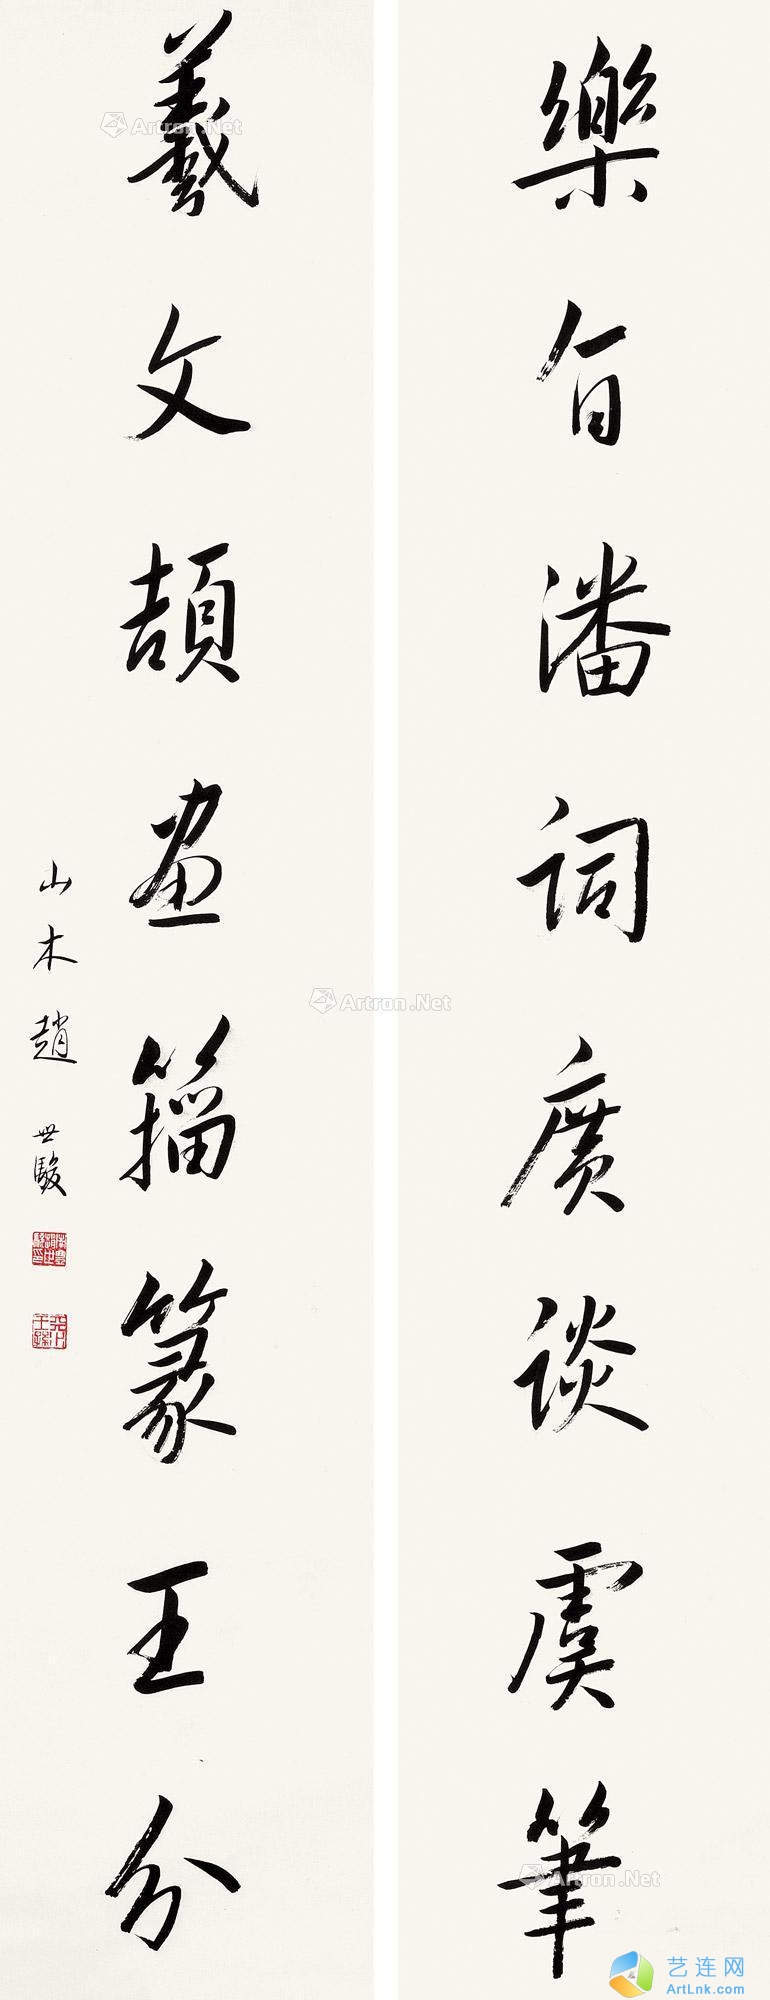 樂旨潘詞廣談虞筆
羲文頡画籀篆王分
山木趙世駿
Artron.Net
Artron.Net
Artron.Net
艺连网
ArtLnk.com